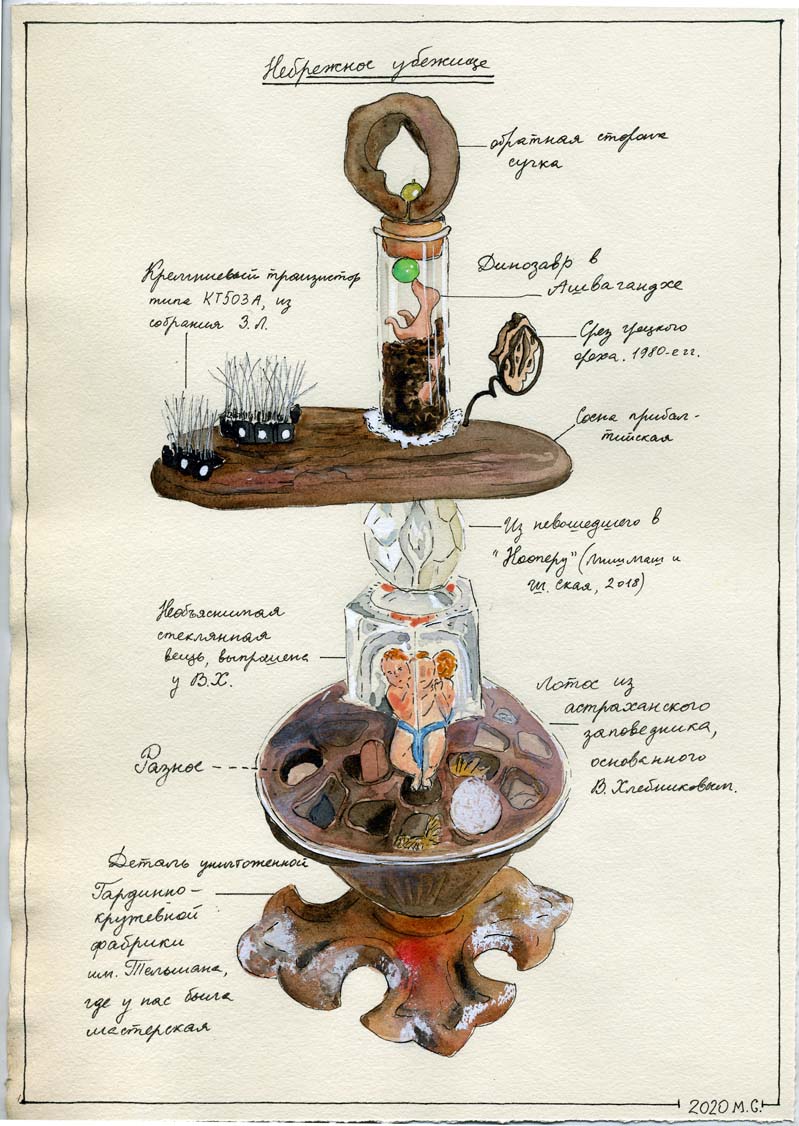 Небрежное убежище
обратная сторона
сучка
Динозавр в
Ашвагандхе
Кремниевый транзистор
типа КТ503А, из
собрания З.Л.
Срез грецкого
ореха. 1980-е гг.
Сосна прибал-
тийская
Из невошедшего в
"Нооперу" (Мишмаш и
Ш. Ская, 2018)
Необъяснимая
стеклянная
вещь, выпрошена
у В.Х.
Лотос из
астраханского
заповедника,
основанного
В. Хлебниковым.
Разное
Деталь уничтоженной
Гардинно-
кружевной
фабрики
им. Тельмана,
где у нас была
мастерская
2020 М.С.